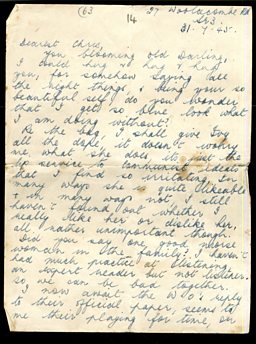 63
14
27 Woolacombe Rd
SE3.
31-7-45.
Dearest Chris,
You blooming old Darling,
I could hug & hug & hug
you, for somehow saying all
the right things, & being your so
beautiful self, do you wonder
that I get so blue, look what
I am doing without!
Re the bag, I shall give Ivy
all the dope, it doesn't worry
me, what she does, its just the
lip service to Communist ideas
that I find so irritating. In
many ways she is quite likeable
& in many ways not, I still
haven't found out whether I
really like her or dislike her,
all rather unimportant though.
Did you say one good Morse
woman in the family? I haven't
had much practice at listening,
an expert reader but not listener.
So we can be bad together.
I now await the W.O's reply
to their official paper, seems to
me their playing for time, or